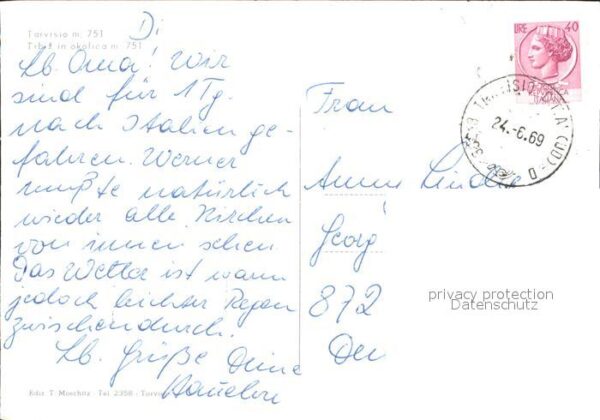 Tarvisio m. 751
Trbiž in okolica m. 751
Di
Lb. Oma! Wir
sind für 1 Tg.
nach Italien ge-
fahren. Werner
mußte natürlich
wieder alle Kirchen
von innen sehen.
Das Wetter ist warm
jedoch leichter Regen
zwischendurch.
Lb. Grüße Deine
Ediz. T. Moschitz - Tel 2358 - Tarvis
LIRE 40
TARVISIO
(UD)
24.-6.69
Frau
Georg
872
privacy protection
Datenschutz